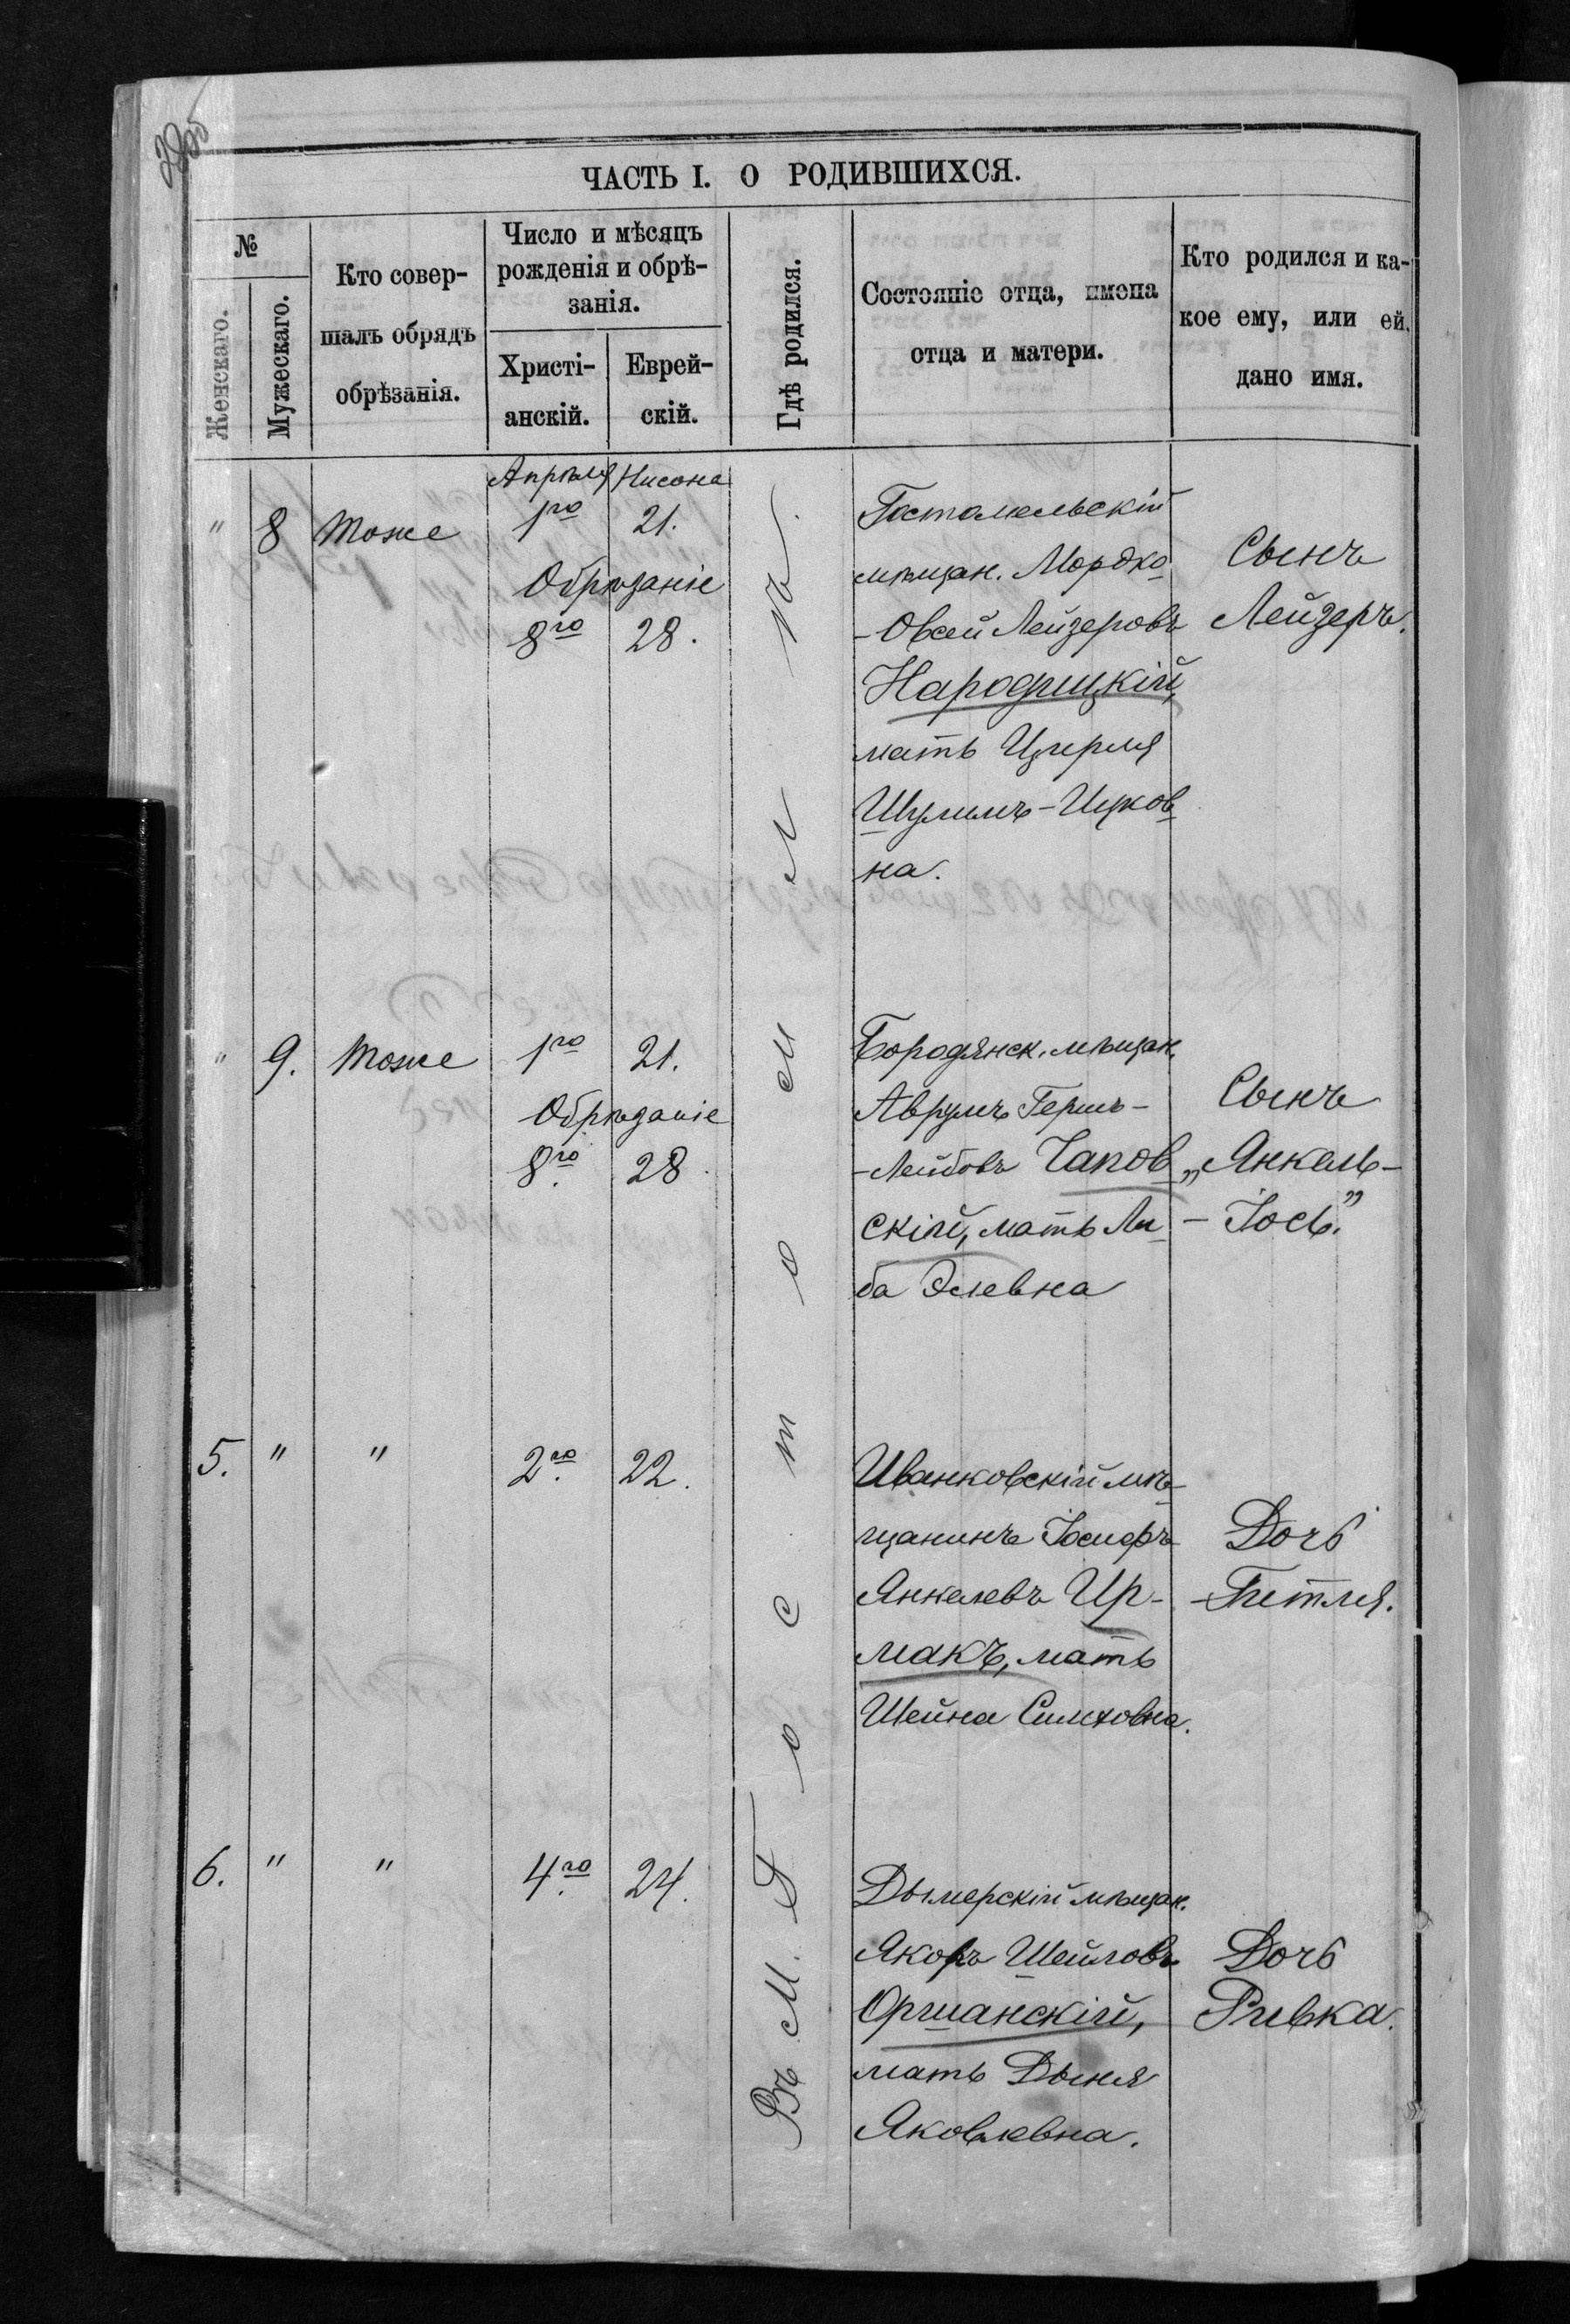 ЧАСТЬ I. О РОДИВШИХСЯ.
№
Женскаго.
Мужескаго.
Кто совер-
шалъ обрядъ
обрѣзанія.
Число и мѣсяцъ
рожденія и обрѣ-
занія.
Христі-
анскій.
Еврей-
скій.
Гдѣ родился.
Состояніе отца, имена
отца и матери.
Кто родился и ка-
кое ему, или ей.
дано имя.
Въ М. Гостомелѣ.
Апрѣля Нисона
" 8 Тоже 1го 21.
Обрѣзаніе
8го 28.
Гостомельскій
мѣщан. Мордко
-Овсей Лейзеровъ
Народицкій,
мать Цирля
Шулимъ-Ицков
на.
Сынъ
Лейзеръ.
" 9. Тоже 1го 21.
Обрѣзаніе
8го 28.
Бородянск. мѣщан.
Аврумъ Герш-
-Лейбовъ Чапов
скій, мать Ли
ба Элевна
Сынъ
„Янкель-
-Іось."
5. " " 2го 22.
Иванковскій мѣ-
щанинъ Іосифъ
Янкелевъ Ир-
макъ, мать
Шейна Симховна.
Дочь
Гитля.
6. " " 4го 24.
Дымерскій мѣщан.
Яковъ Шейловъ
Оршанскій,
мать Дыня
Яковлевна.
Дочь
Ривка.